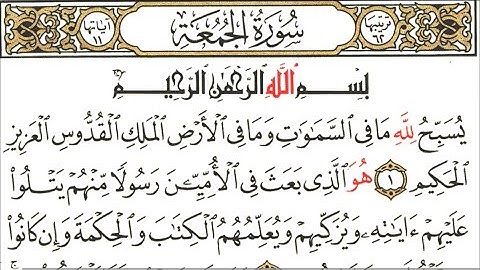 ترتيبها ٦٢
سُورَةُ الجُمُعَةِ
آياتها ١١
بِسْمِ اللَّهِ الرَّحْمَٰنِ الرَّحِيمِ
يُسَبِّحُ لِلَّهِ مَا فِي السَّمَٰوَٰتِ وَمَا فِي الْأَرْضِ الْمَلِكِ الْقُدُّوسِ الْعَزِيزِ
الْحَكِيمِ ١ هُوَ الَّذِي بَعَثَ فِي الْأُمِّيِّـۧنَ رَسُولًا مِّنْهُمْ يَتْلُوا
عَلَيْهِمْ ءَايَٰتِهِ وَيُزَكِّيهِمْ وَيُعَلِّمُهُمُ الْكِتَٰبَ وَالْحِكْمَةَ وَإِن كَانُوا